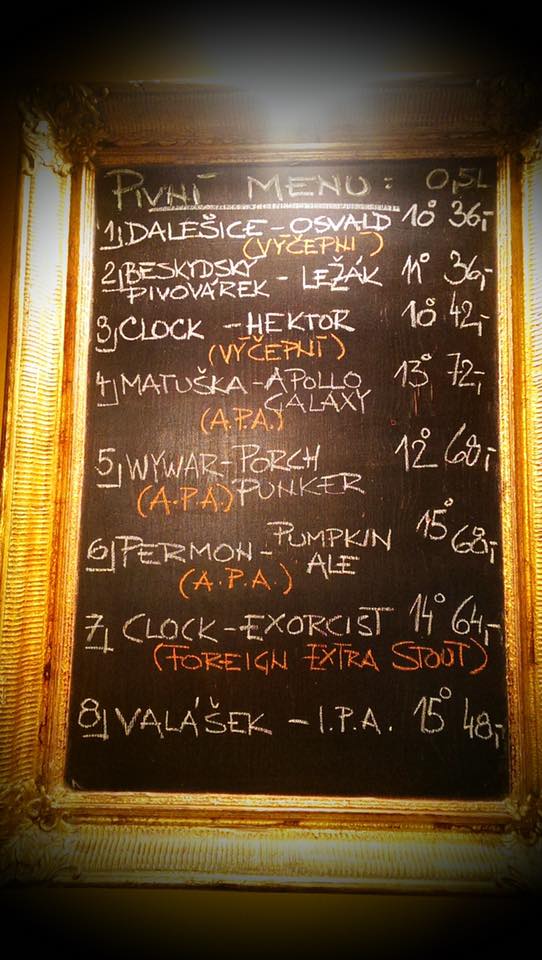 PIVNÍ MENU: 0,5L
1, DALEŠICE - OSVALD 10° 36,-
(VÝČEPNÍ)
2, BESKYDSKÝ
PIVOVÁREK - LEŽÁK 11° 36,-
3, CLOCK - HEKTOR 10° 42,-
(VÝČEPNÍ)
4, MATUŠKA - APOLLO 13° 72,-
GALAXY
(A.P.A.)
5, WYWAR - PORCH 12° 68,-
(A.P.A.) PUNKER
6, PERMON - PUMPKIN 15° 68,-
ALE
(A.P.A.)
7, CLOCK - EXORCIST 14° 64,-
(FOREIGN EXTRA STOUT)
8, VALÁŠEK - I.P.A. 15° 48,-